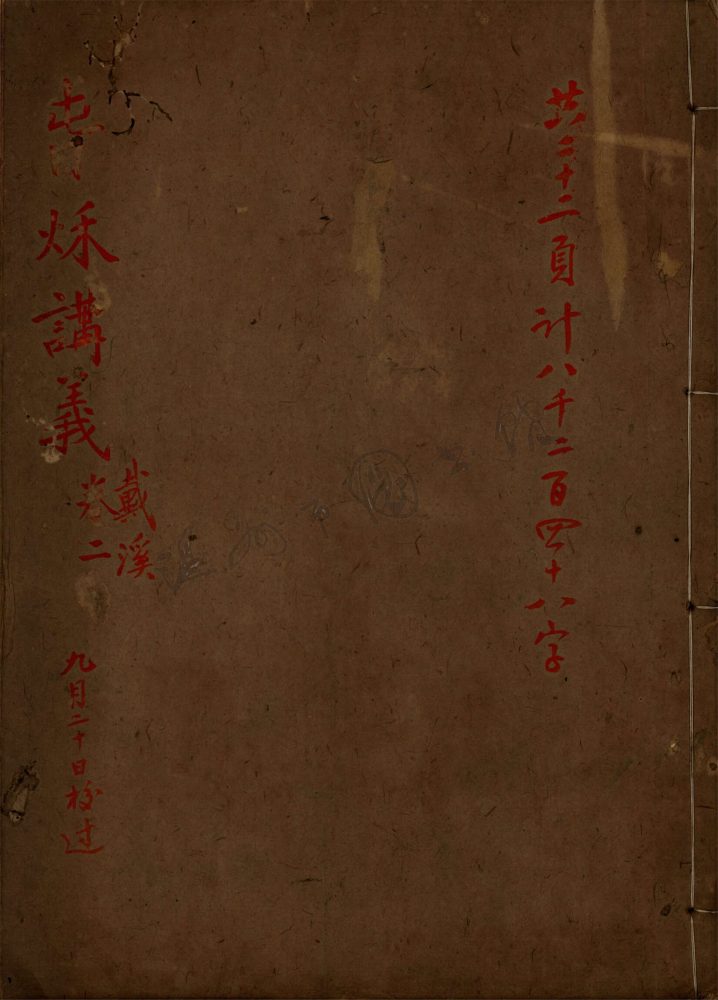 共二十二頁計八千二百四十八字
旾秌講義
戴溪
卷二
九月二十日校过